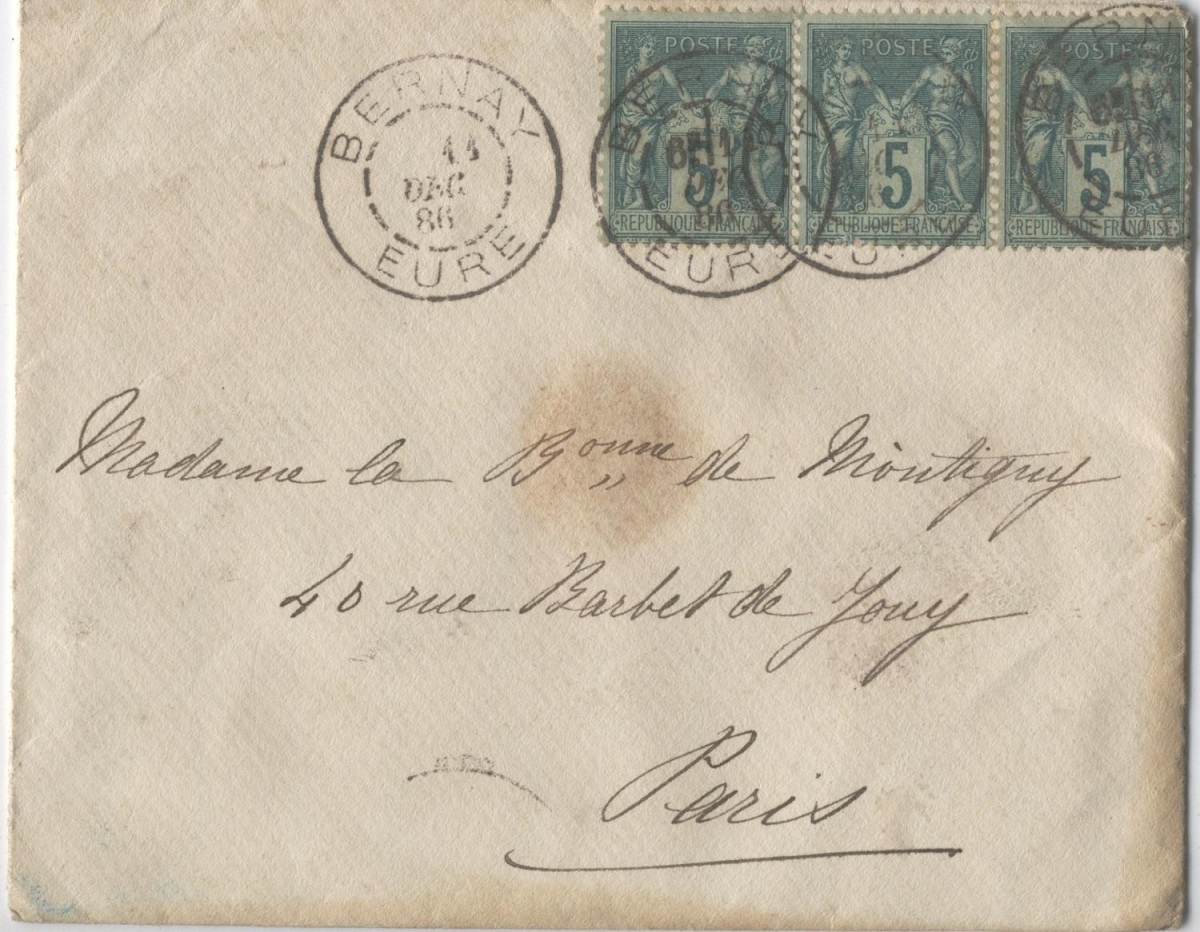 POSTE POSTE POSTE
5 5 5
REPUBLIQUE FRANÇAISE REPUBLIQUE FRANÇAISE REPUBLIQUE FRANÇAISE
BERNAY
11
DEC
86
EURE
DEC
86
EURE
Madame la Bonne de Montigny
40 rue Barbet de Jouy
Paris